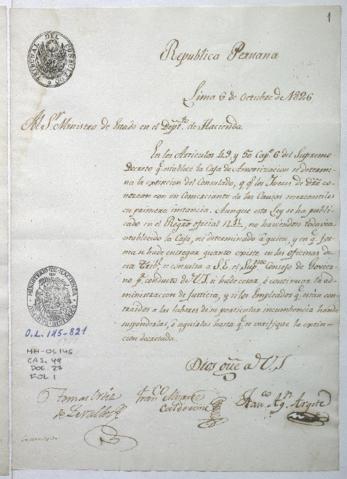 1
TRIBUNAL DEL CONSULADO
Republica Peruana
Lima 6 de Octubre de 1826
Al Sr. Ministro de Estado en el Depto. de Hacienda.
En los Articulos 49 y 50 Cap. 6 del Supremo
Decreto q. establece la Caja de Amortizacion se determi-
na la extincion del Consulado, y q. los Jueces de dro. co-
nozcan con un Comerciante de las Causas mercantiles
en primera instancia. Aunque esta Ley se ha publi-
cado en el Registro oficial no haviendose todavia
establecido la Caja, ni determinado a quien, y en q. for-
ma se hade entregar quanto existe en las oficinas de
este Tribl. consulta a S.E. el Supmo. Consejo de Govier-
no p. conducto de V.S. si hade cesar, o continuar la ad-
ministracion de Justicia, y si los Empleados q. estan con-
traidos a las labores de su particular incumbencia hande
suspenderlas, o seguirlas hasta q. se verifique la extin-
cion decretada.
Dios gue. a V.S.
O.L. 145-821
MH-OL 145
CAJ. 49
DOC. 27
FOL 1
Tomas Ortiz
de Zevallos
Franco.
Calderon
Juan Agn.